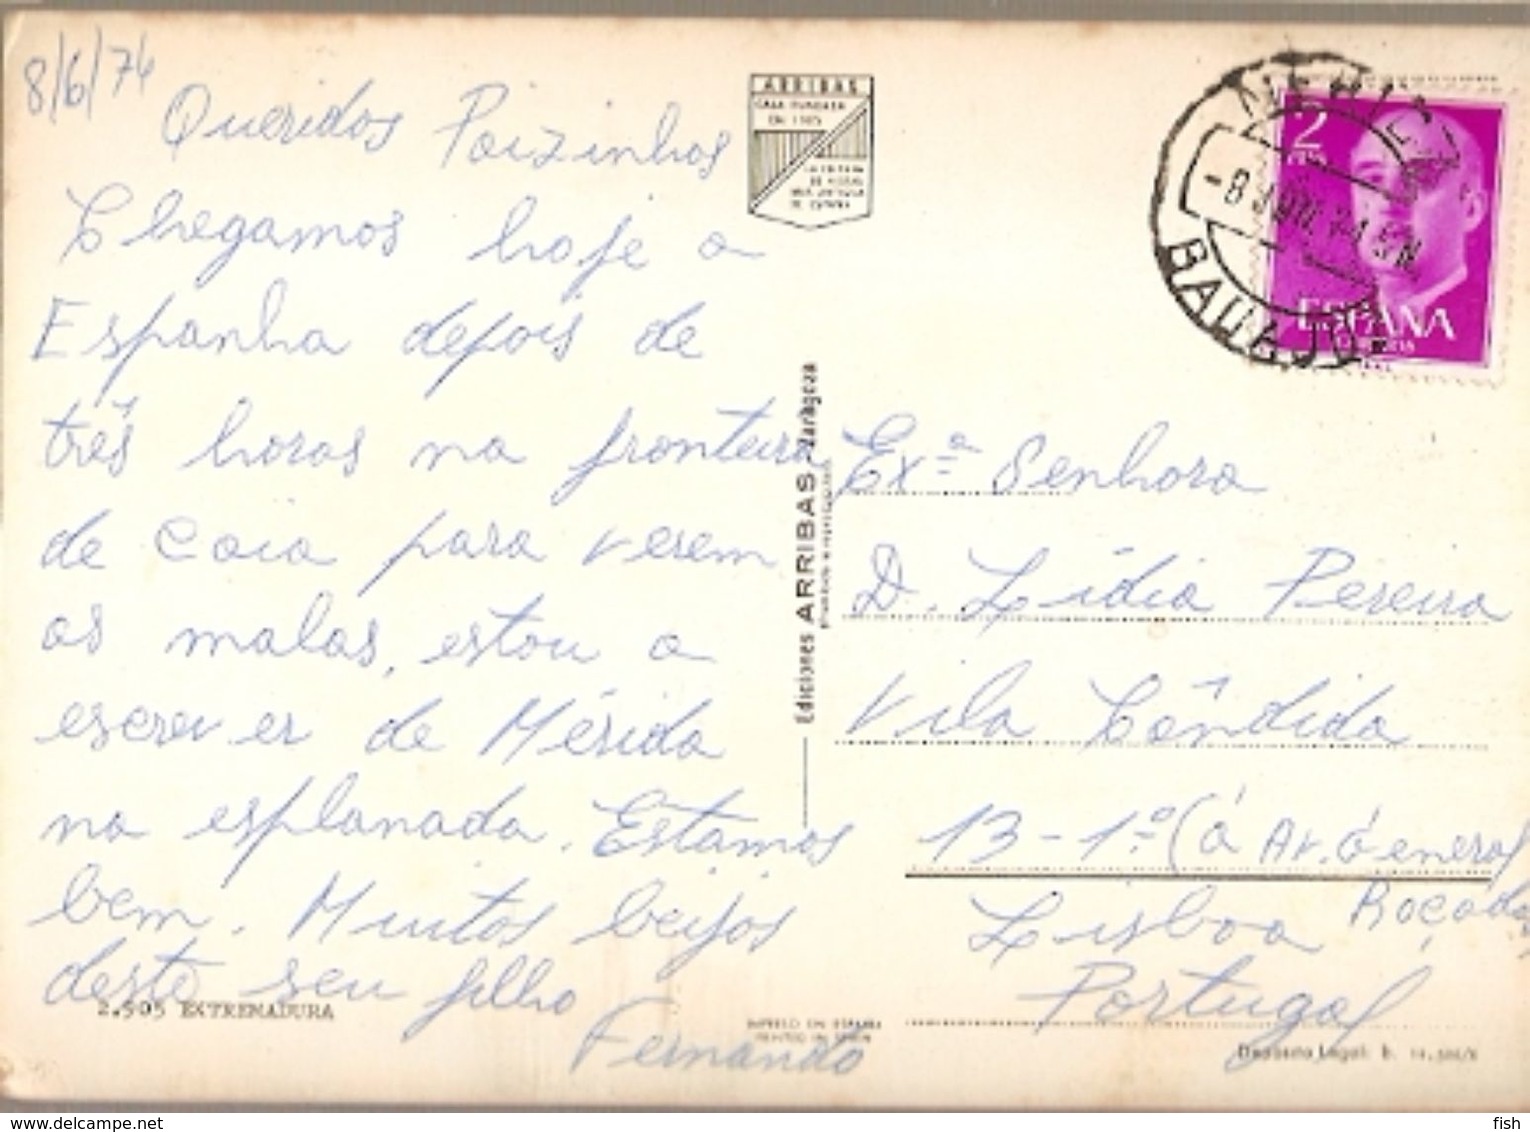 8/6/74
Queridos Paizinhos
Chegamos hoje a
Espanha depois de
três horas na fronteira
de Caia para verem
as malas, estou a
escrever de Mérida
na esplanada. Estamos
bem. Muitos beijos
deste seu filho
Fernando
2.505 EXTREMADURA
ARRIBAS
CASA FUNDADA
EN 1905
Ediciones ARRIBAS Zaragoza
IMPRESO EN ESPAÑA
PRINTED IN SPAIN
2
PTAS
ESPAÑA
CORREOS
MERIDA
-8 JUN.74
BADAJOZ
Exª Senhora
D. Lídia Pereira
Vila Cândida
13-1º (á Av. General
Roçadas
Lisboa
Portugal
Depósito Legal: B.
fish